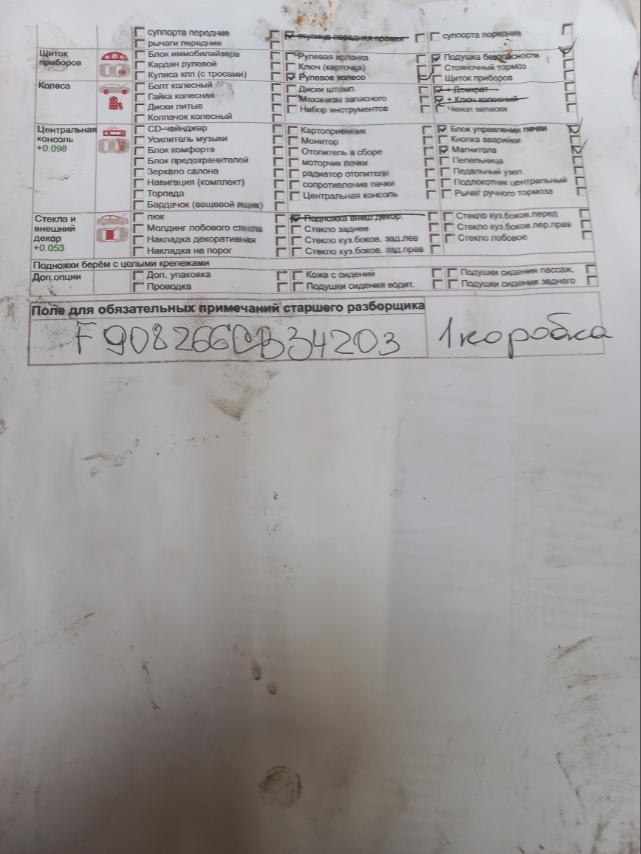 суппорта передние ступица передняя правая суппорта передние
рычаги передние
Щиток приборов Блок иммобилайзера Рулевая колонка Подушка безопасности
Кардан рулевой Ключ (карточка) Стояночный тормоз
Кулиса кпп (с тросами) Рулевое колесо Щиток приборов
Колеса Болт колесный Диски штамп. + Домкрат
Гайка колесная Механизм запасного + Ключ колесный
Диски литые Набор инструментов Чехол запаски
Колпачок колесный
Центральная консоль +0.098 CD-чейнджер Картоприемник Блок управления печки
Усилитель музыки Монитор Кнопка аварийки
Блок комфорта Отопитель в сборе Магнитола
Блок предохранителей моторчик печки Пепельница
Зеркало салона радиатор отопителя Педальный узел
Навигация (комплект) сопротивление печки Подлокотник центральный
Торпеда Центральная консоль Рычаг ручного тормоза
Бардачок (вещевой ящик)
Стекла и внешний декор +0.053 люк Подножка внеш.декор. Стекло куз.боков.перед
Молдинг лобового стекла Стекло заднее Стекло куз.боков.пер.прав
Накладка декоративная Стекло куз.боков. зад.лев Стекло лобовое
Накладка на порог Стекло куз.боков. зад.прав
Подножки берём с целыми крепежами
Доп.опции Доп. упаковка Кожа с сидений Подушки сидения пассаж.
Проводка Подушки сидения водит. Подушки сидения заднего
Поле для обязательных примечаний старшего разборщика
1 коробка